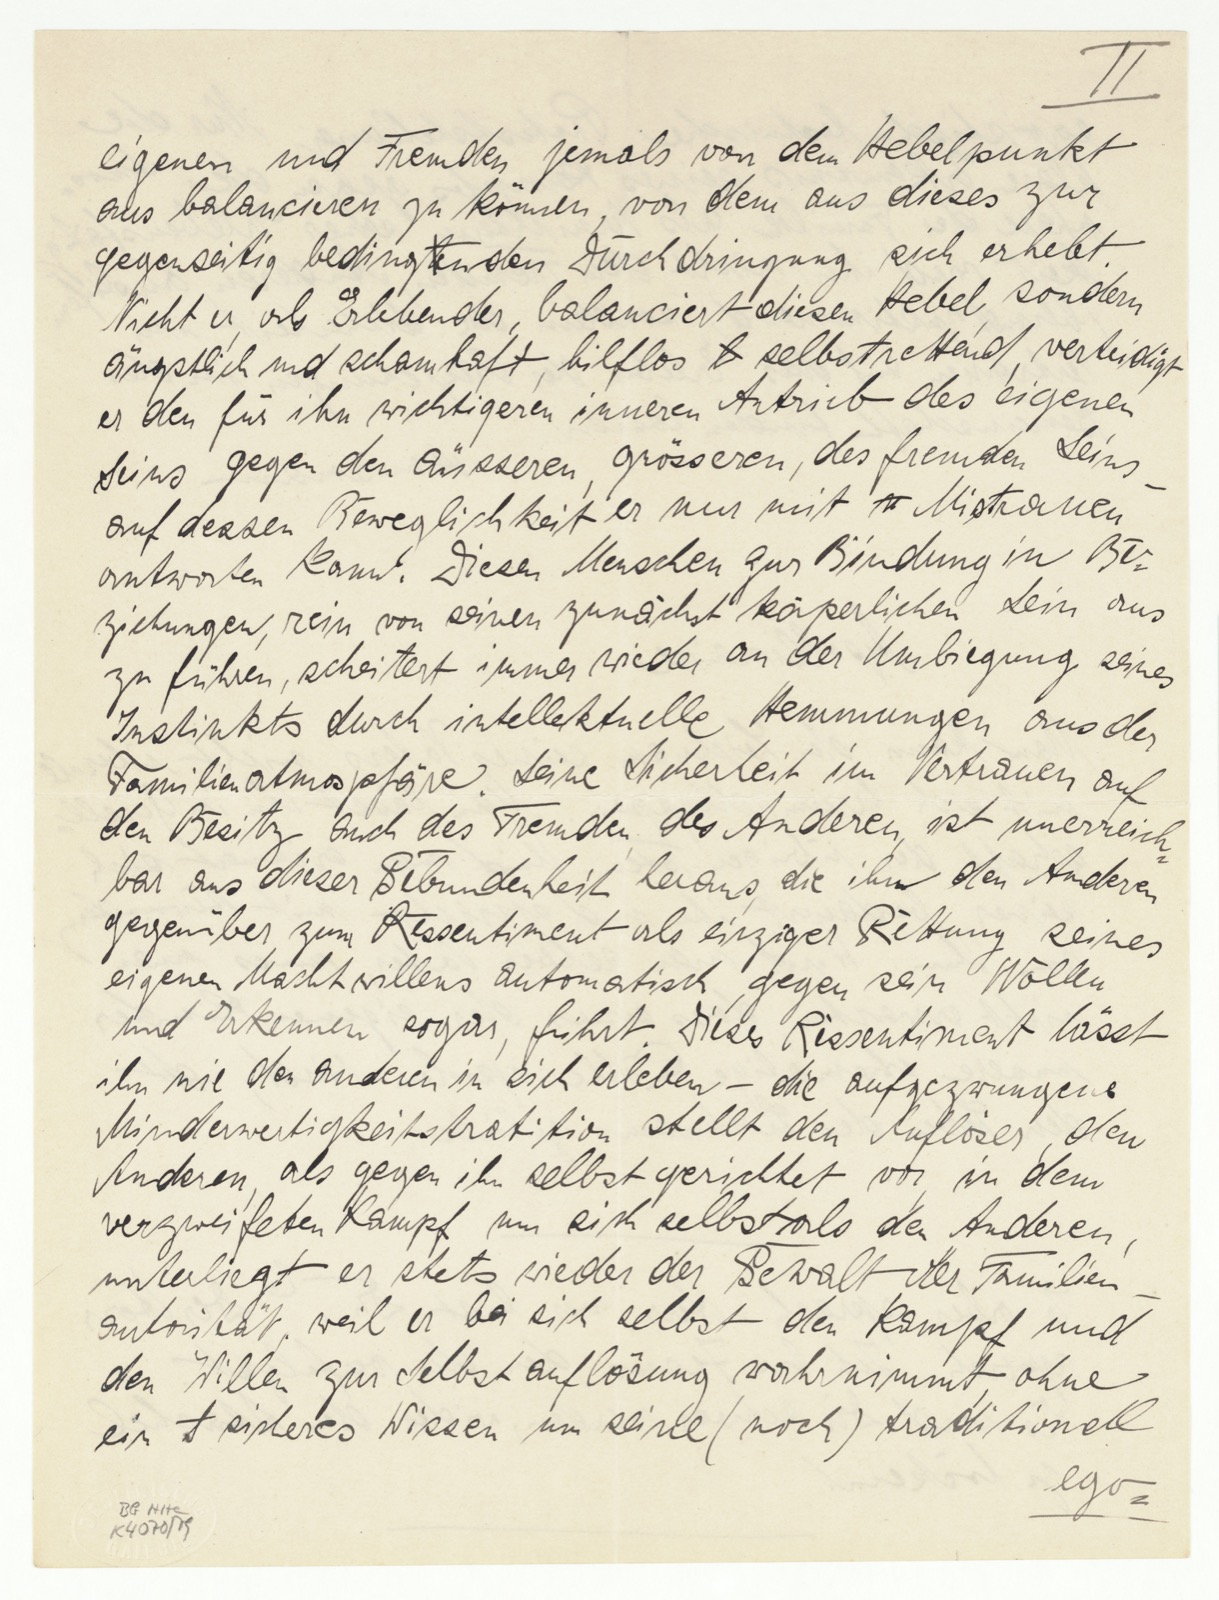 II
eigenen und Fremden jemals von dem Hebelpunkt
aus balancieren zu können, von dem aus dieses zur
gegenseitig bedingtenden Durchdringung sich erhebt.
Nicht er, als Erlebender, balanciert diesen Hebel, sondern
ängstlich und schamhaft, hilflos selbstrettend, verteidigt
er den für ihn wichtigeren inneren Antrieb des eigenen
Seins gegen den äusseren, grösseren, des fremden Seins_
auf dessen Beweglichkeit er nur mit Mistrauen
antworten kann. Diesen Menschen zur Bindung in Be=
ziehungen, rein von seinen zunächst körperlichen Sein aus
zu führen, scheitert immer wieder an der Umbiegung seines
Instinkts durch intellektuelle Hemmungen aus der
Familienatmosphäre. Seine Sicherheit im Vertrauen auf
den Besitz auch des Fremden, des Anderen, ist unerreich=
bar aus dieser Gebundenheit heraus, die ihn den Anderen
gegenüber zum Ressentiment als einziger Rettung seines
eigenen Machtwillens automatisch, gegen sein Wollen
und Erkennen sogar, führt. Dieses Ressentiment lässt
ihn nie den anderen in sich erleben – die aufgezwungene
Minderwertigkeitstratition stellt den Auflöser, den
Anderen, als gegen ihn selbst gerichtet vor, in dem
verzweifeten Kampf um sich selbst als den Anderen,
unterliegt er stets wieder der Gewalt der Familien_
autorität, weil er bei sich selbst den Kampf und
den Willen zur Selbstauflösung wahrnimmt, ohne
ein sicheres Wissen um seine (noch) traditionell
ego=
BG HHC
K4070/79